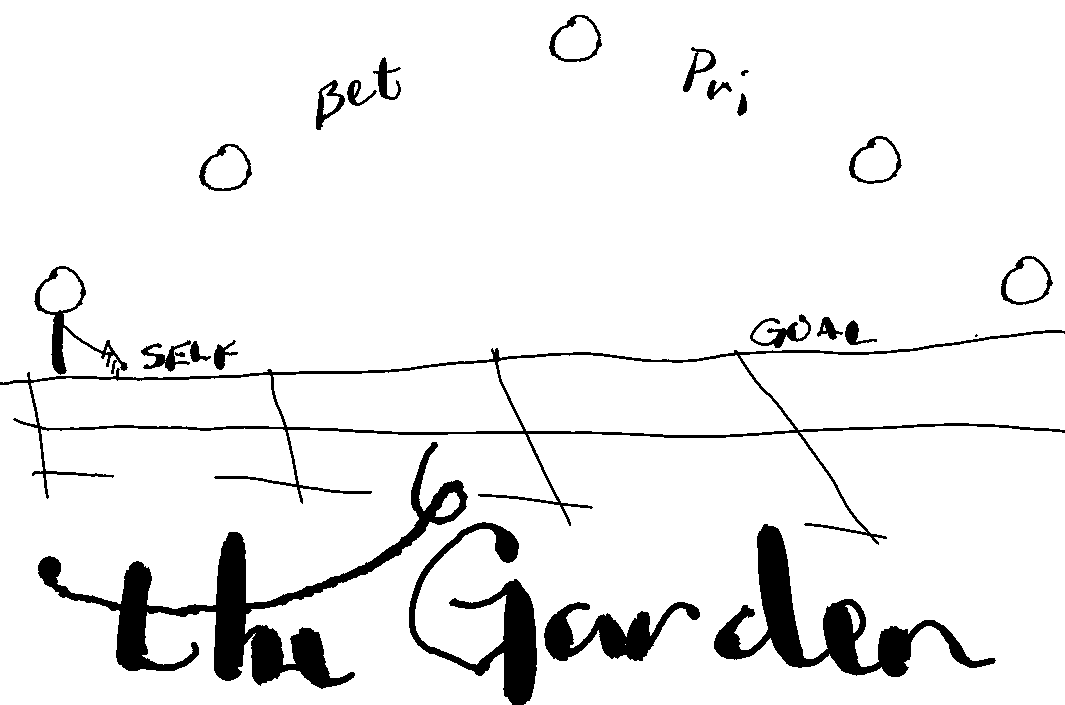 Bet Pri
SELF GOAL
6
the Garden